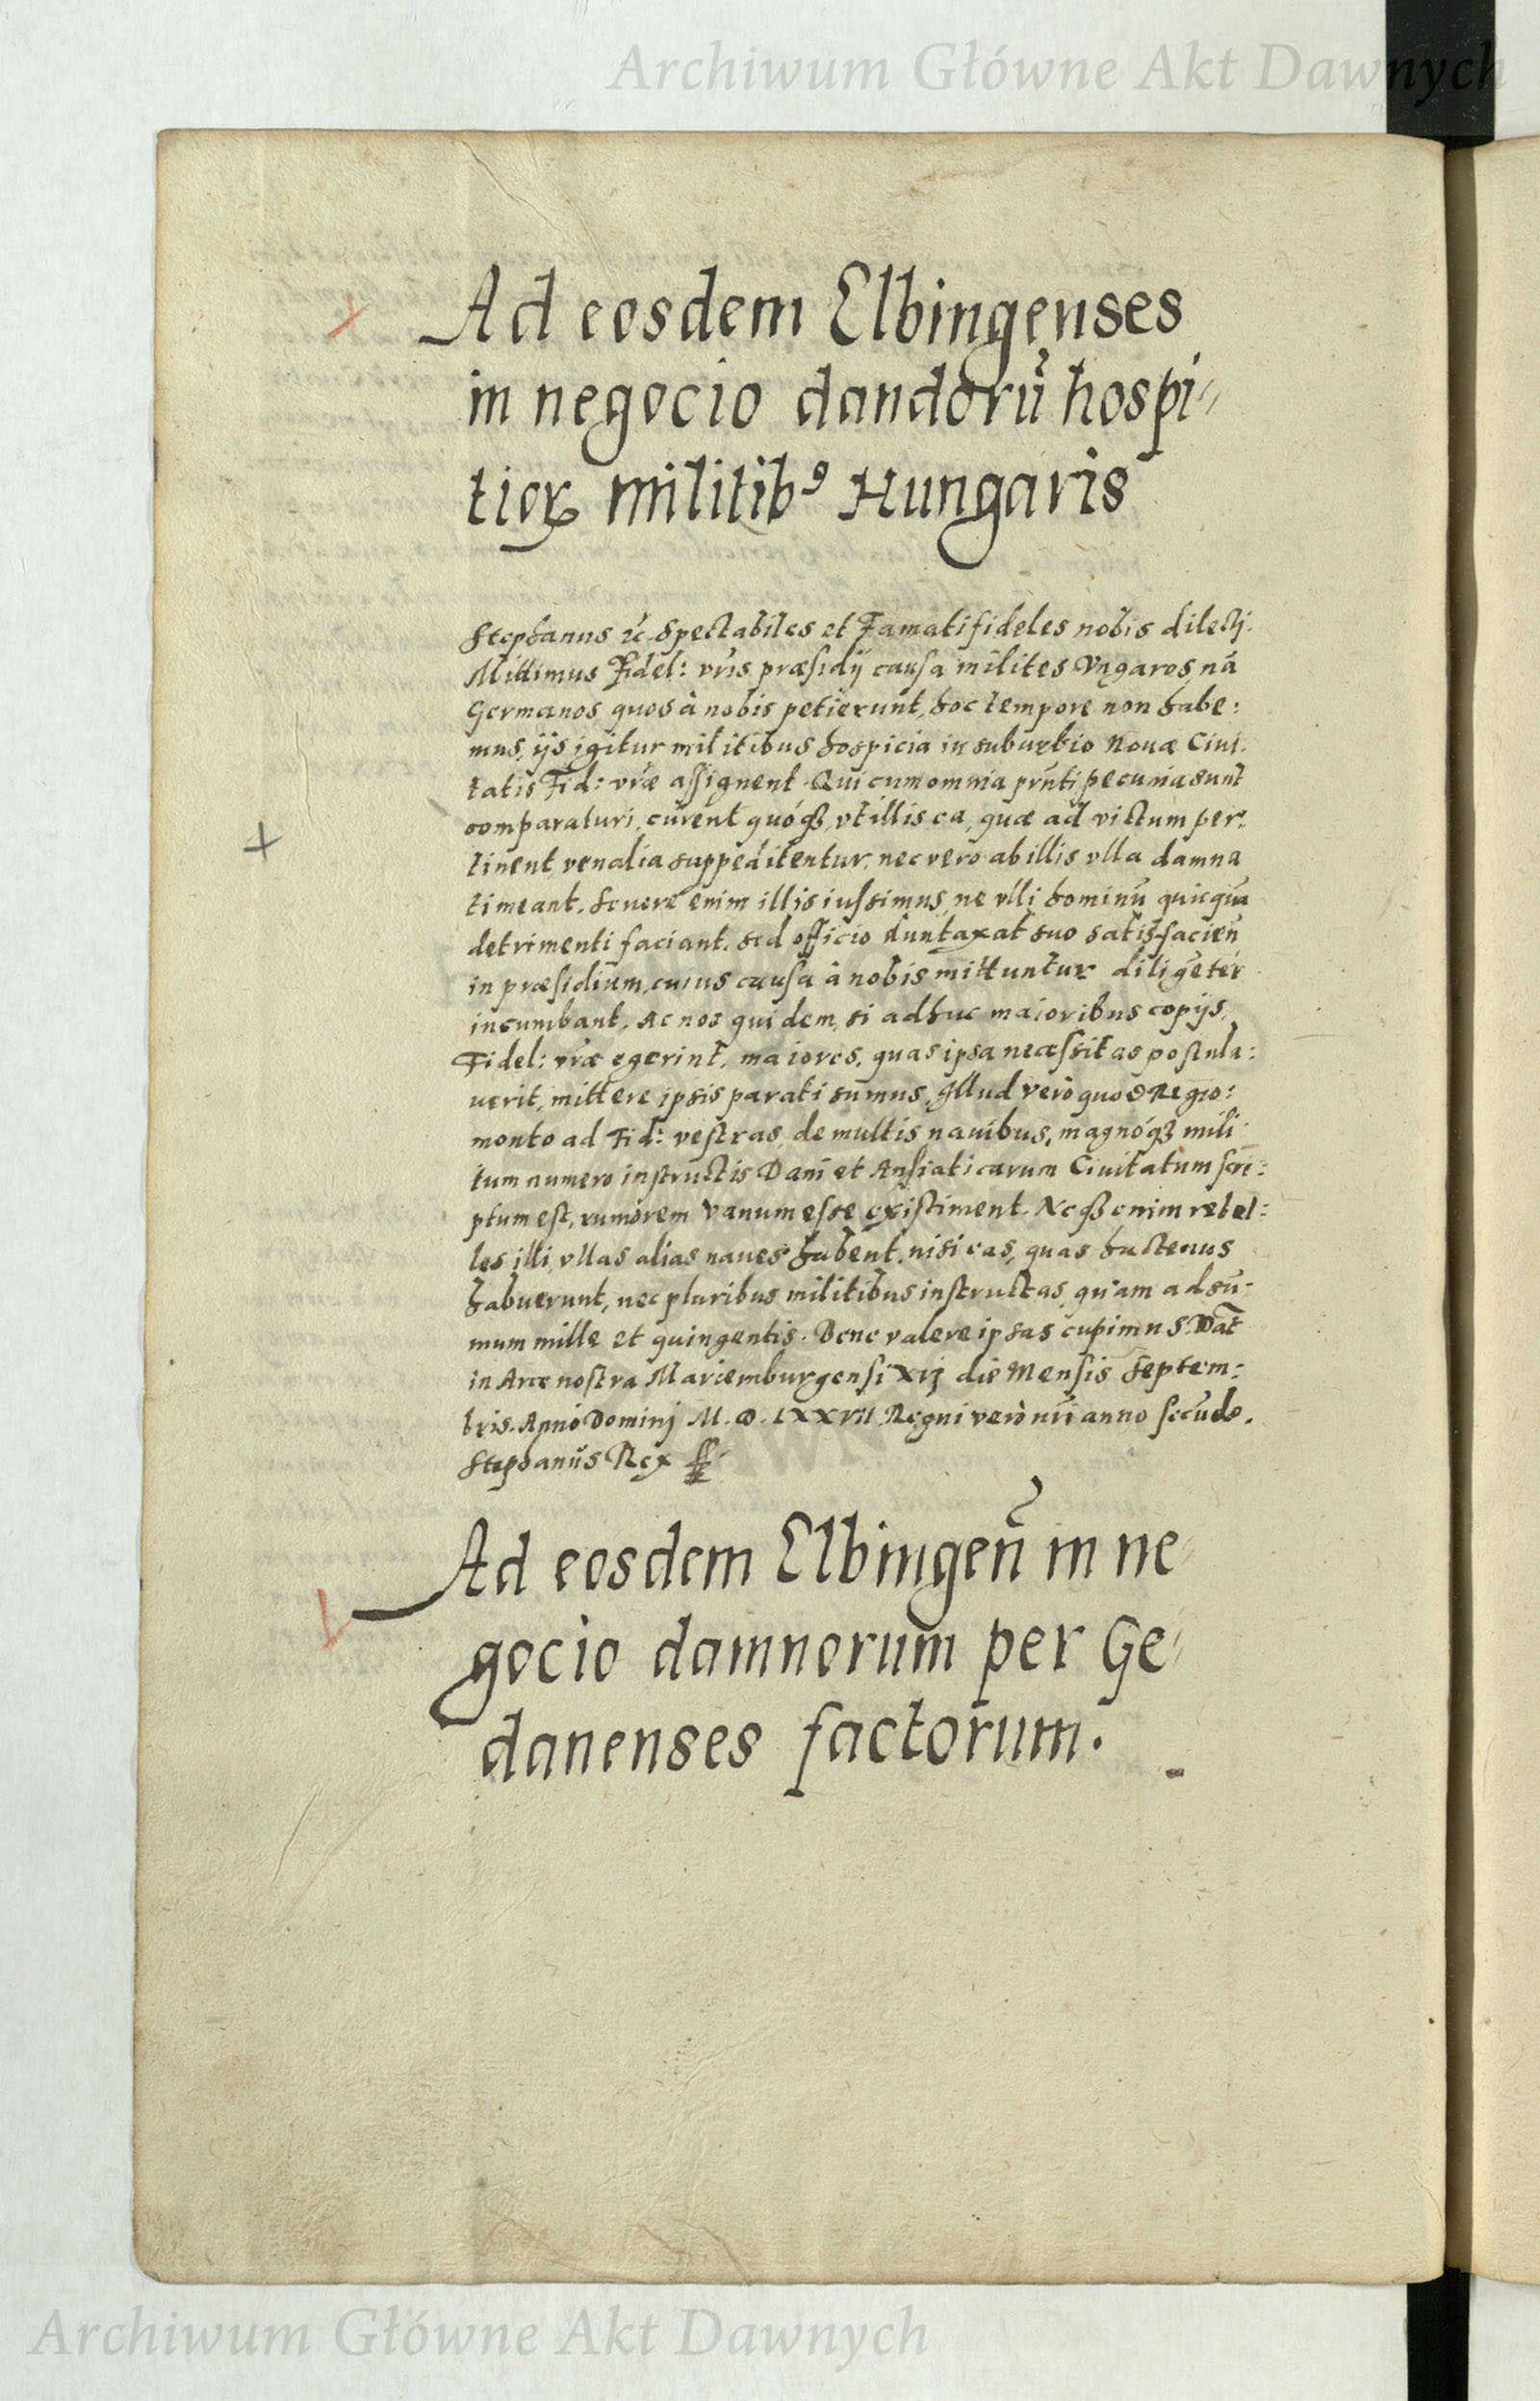 Archiwum Główne Akt Dawnych
Ad eosdem Elbingenses
in negocio dandorũ hospi-
tioꝝ militibꝰ Hungaris
Stephanus ꝛc̃. Spectabiles et Famati fideles nobis dilectj.
Mittimus Fidel: vr̃is præsidij causa milites Vngaros, nã
Germanos quos à nobis petierunt, hoc tempore non habe:
mus, ijs igitur militibus hospicia in suburbio Nouæ Ciui-
tatis Fid: vr̃æ assignent. Qui cum omnia prñti pecunia sunt
comparaturi, curent quóqꝫ, vt illis ea, quæ ad victum per-
tinent, venalia suppeditentur, nec vero ab illis vlla damna
timeant. Seuerè enim illis iussimus, ne vlli hominũ quicquã
detrimenti faciant. sed officio duntaxat suo satisfacien̄
in præsidium, cuius causa à nobis mittuntur diligẽter
incumbant. Ac nos quidem, si adhuc maioribus copijs,
Fidel: vr̃æ egerint, maiores, quas ipsa necessitas postula:
uerit, mittere ipsis parati sumus. Illud verò quod Regio:
monto ad Fid: vestras, de multis nauibus, magnóqꝫ mili-
tum numero instructis Dani et Ansiaticarum Ciuitatum scri:
ptum est, rumorem vanum esse existiment. Neqꝫ enim rebel:
les illi, vllas alias naues habent, nisi eas, quas hactenus
habuerunt, nec pluribus militibus instructas, quàm ad sũ-
mum mille et quingentis. Bene valere ipsas cupimus. Dat̃
in Arce nostra Mariemburgensi xij die Mensis Septem:
bris. Anno Dominj M. D. LXXVII Regni verò nr̃i anno secũdo.
Stephanus Rex
Ad eosdem Elbingen̄ in ne-
gocio damnorum per Ge-
danenses factorum.
Archiwum Główne Akt Dawnych